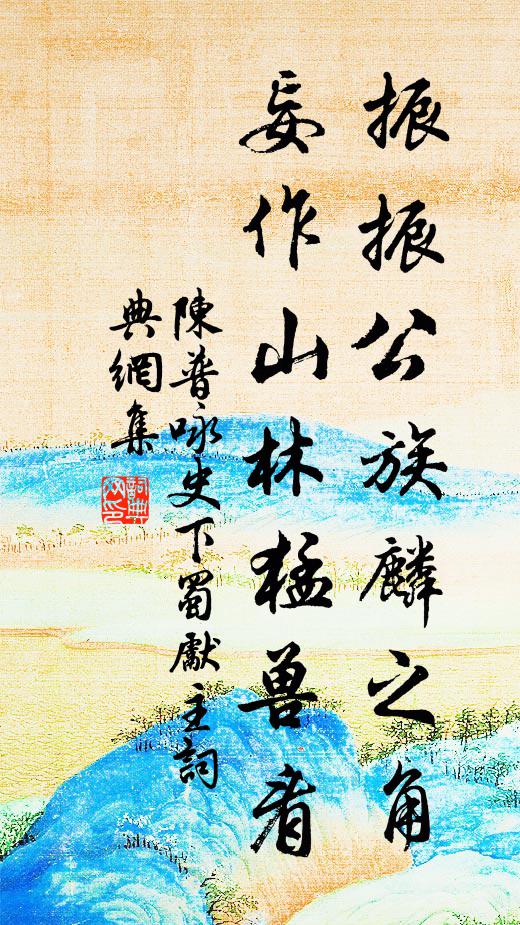 振振公族麟之角
妄作山林猛兽看
陳普咏史下蜀獻主詞
典網集